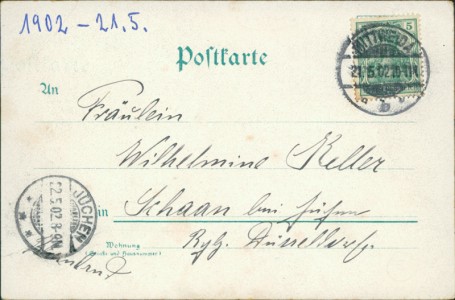 1902 - 21.5.
Postkarte
5
21.5.02
An
Fräulein
Wilhelmine Keller
in Schaan bei Jüchen
Wohnung
(Straße und Hausnummer)
Rgbz. Düsseldorf.
JÜCHEN
22.5.02.8-9N